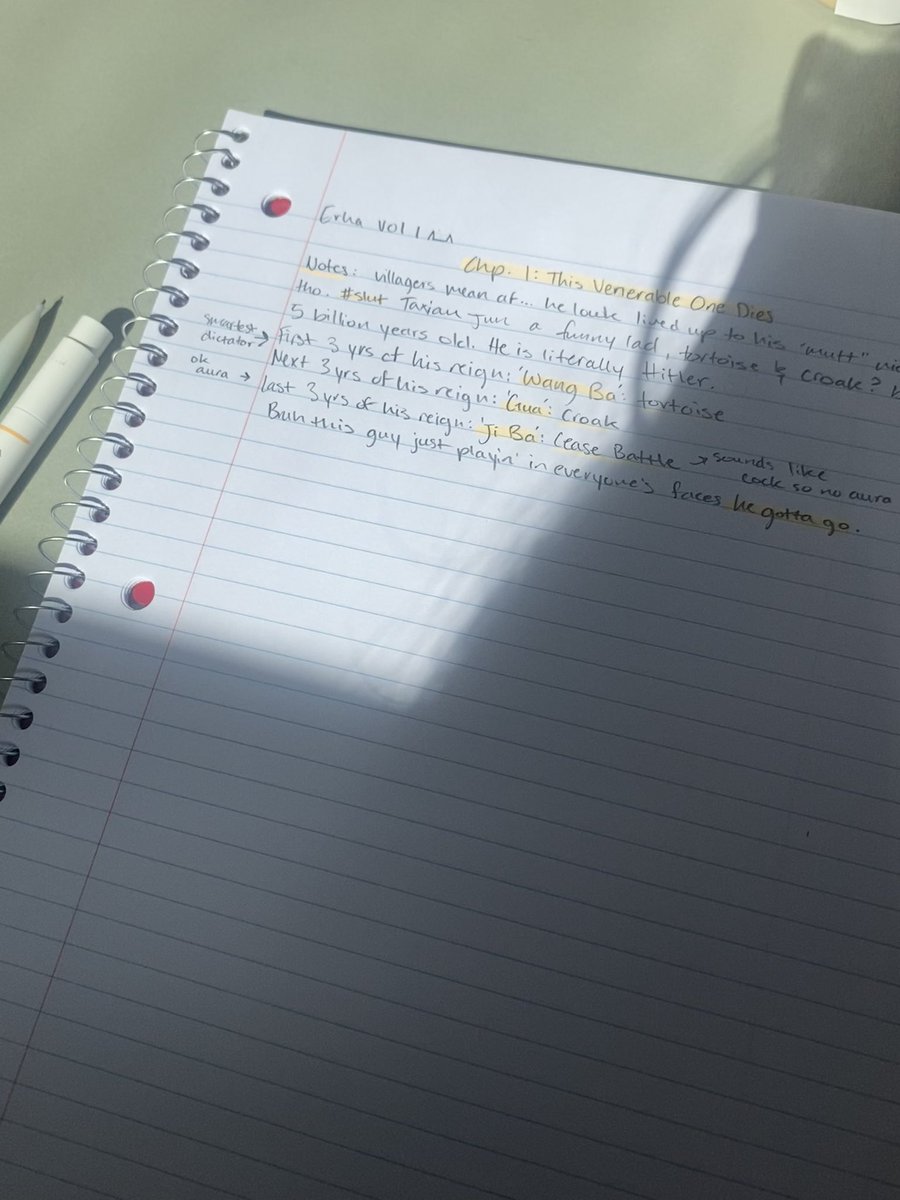 Erha vol 1
Chp. 1: This Venerable One Dies
Notes: villagers mean af... he lowk lived up to his "mutt"
tho. #slut Taxian Jun a funny lad, tortoise & croak?
5 billion years old. He is literally Hitler.
smartest dictator → First 3 yrs of his reign: 'Wang Ba': tortoise
ok aura → Next 3 yrs of his reign: 'Gua': Croak
last 3 yrs of his reign: 'Ji Ba': Cease Battle → sounds like cock so no aura
Buh this guy just playin' in everyone's faces he gotta go.